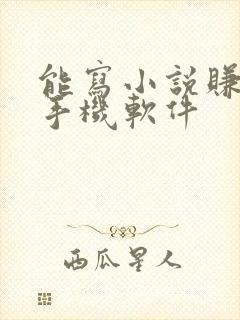 能寫小說賺
手機軟件
西瓜星人